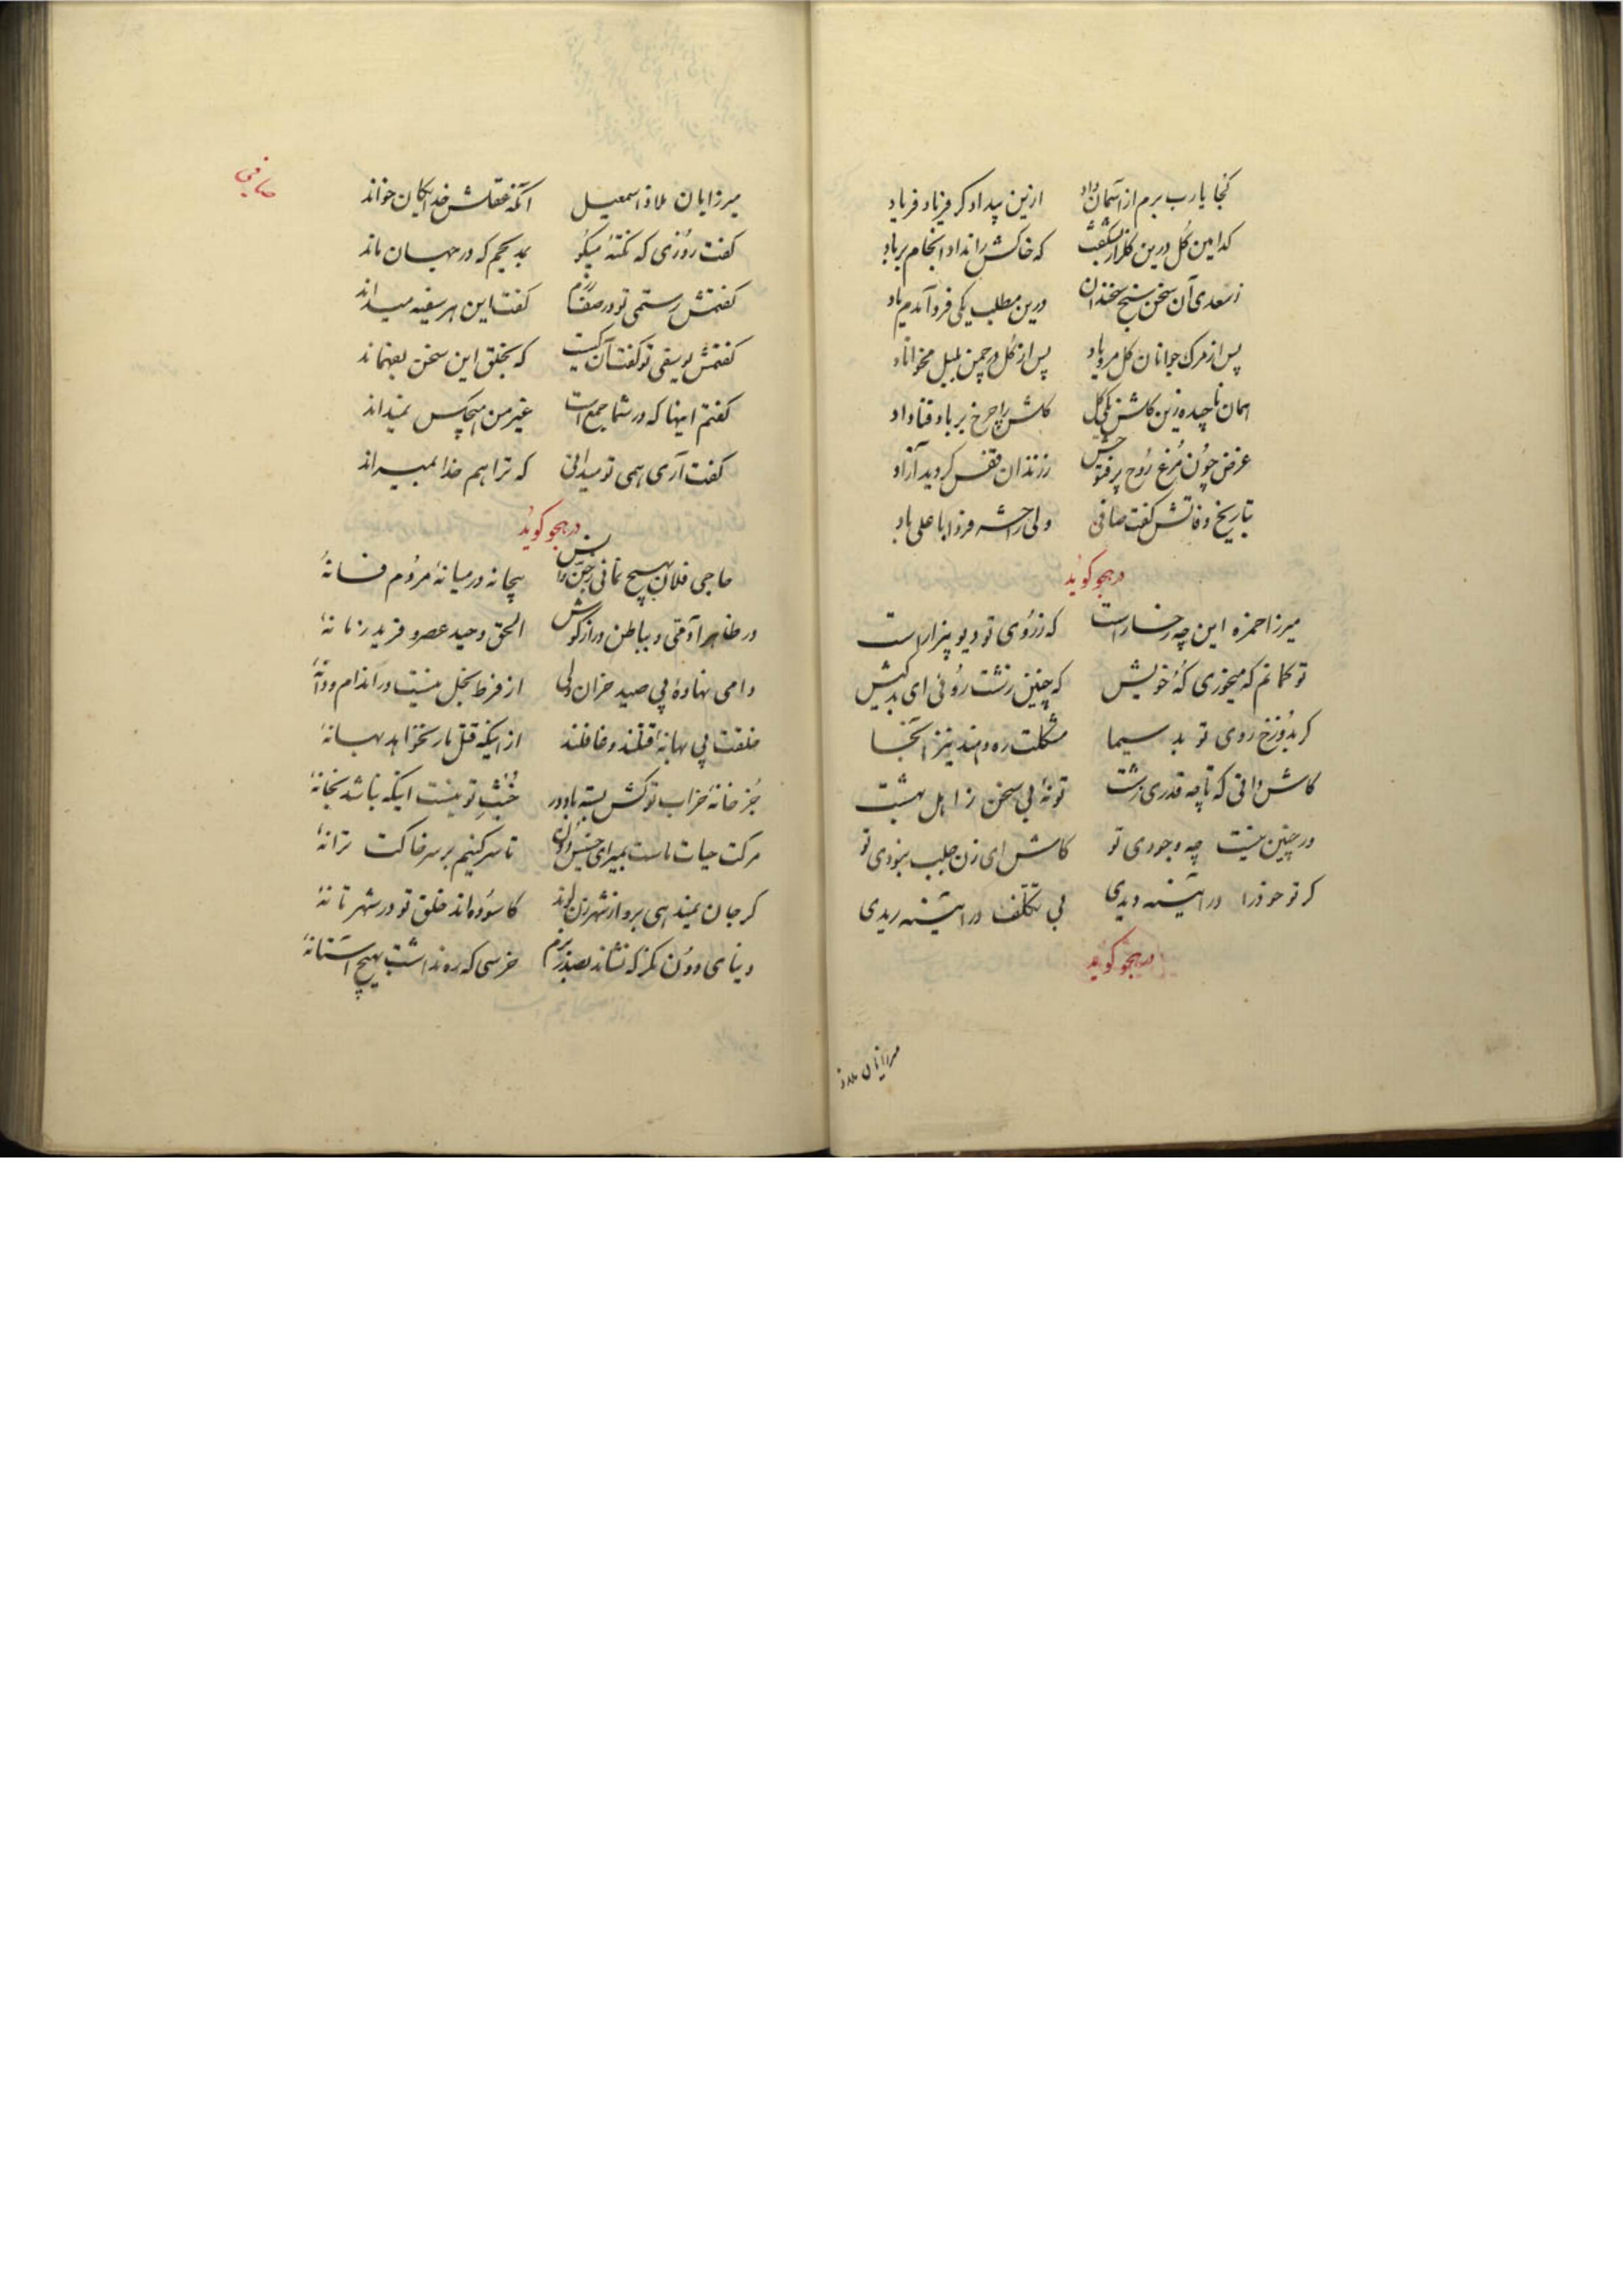 کجا یا رب برم از آسمان داد ازین بیداد کر فریاد فریاد
کدامین کل درین کلزار بشکفت که خاکش را نداد انجام بر باد
ز سعدی آن سخن سنج سخندان درین مطلب یکی فرد آمدم یاد
پس از مرک جوانان کل مرویاد پس از کل در چمن بلبل مخواناد
همان ناچیده زین کلشن یکی کل کلش را چرخ بر باد فنا داد
غرض چون مرغ روح پرفتوحش ز زندان قفس کردید آزاد
بتاریخ وفاتش کفت صافی ولی را حشر فردا با علی باد
در هجو کوید
میرزا حمزه این چه رخسار است که ز روی تو دیو بیزار است
تو کمانم که میخوری که خویش که چنین زشت روئی ای بد کیش
کر بدوزخ روی تو بد سیما مشکلت ره دهند نیز آنجا
کاش دانی که تا چه قدری زشت تو نهٔ بی سخن ز اهل بهشت
در چنین نیست چه وجودی تو کاش ای زن جلب نبودی تو
کر تو خود را در آئینه دیدی بی تکلف در آئینه ریدی
در هجو کوید
میرزایان ملاذ
صافی
میرزایان ملاذ اسمعیل آنکه عقلش خدایکان خواند
کفت روزی که نکتهٔ میکو بمدیحم که در جهان ماند
کفتمش رستمی تو در صف رزم کفت این هر سفیه میداند
کفتمش یوسفی تو کفت آن کیست که بخلق این سخن بفهماند
کفتم اینها که در شما جمع است غیر من هیچکس نمیداند
کفت آری همی تو میدانی که ترا هم خدا بمیراند
در هجو کوید
حاجی فلان بهیچ نمانی ز جنس بیجا نه در میانهٔ مردم فسانهٔ
در ظاهر آدمی و بباطن دراز کوش الحق وحید عصر و فرید زمانهٔ
دامی نهادهٔ پی صید خران ولی از فرط بخل نیست در اندام و دانهٔ
خلقت پی بهانهٔ قتلند و غافلند از اینکه قتل مار نخواهد بهانهٔ
جز خانهٔ خراب تو کش بسته باد در خبث تو نیست اینکه نباشد بخانهٔ
مرکت حیات ماست بمیر ای خسیس دون تا سر کنیم بر سر خاکت ترانهٔ
کر جان نمیدهی برو از شهر زن کاسوده‌اند خلق تو در شهر تا نهٔ
دنیای دون نکر که نشاند بصدر بزم خرسی که ره نداشت بهیچ آستانهٔ